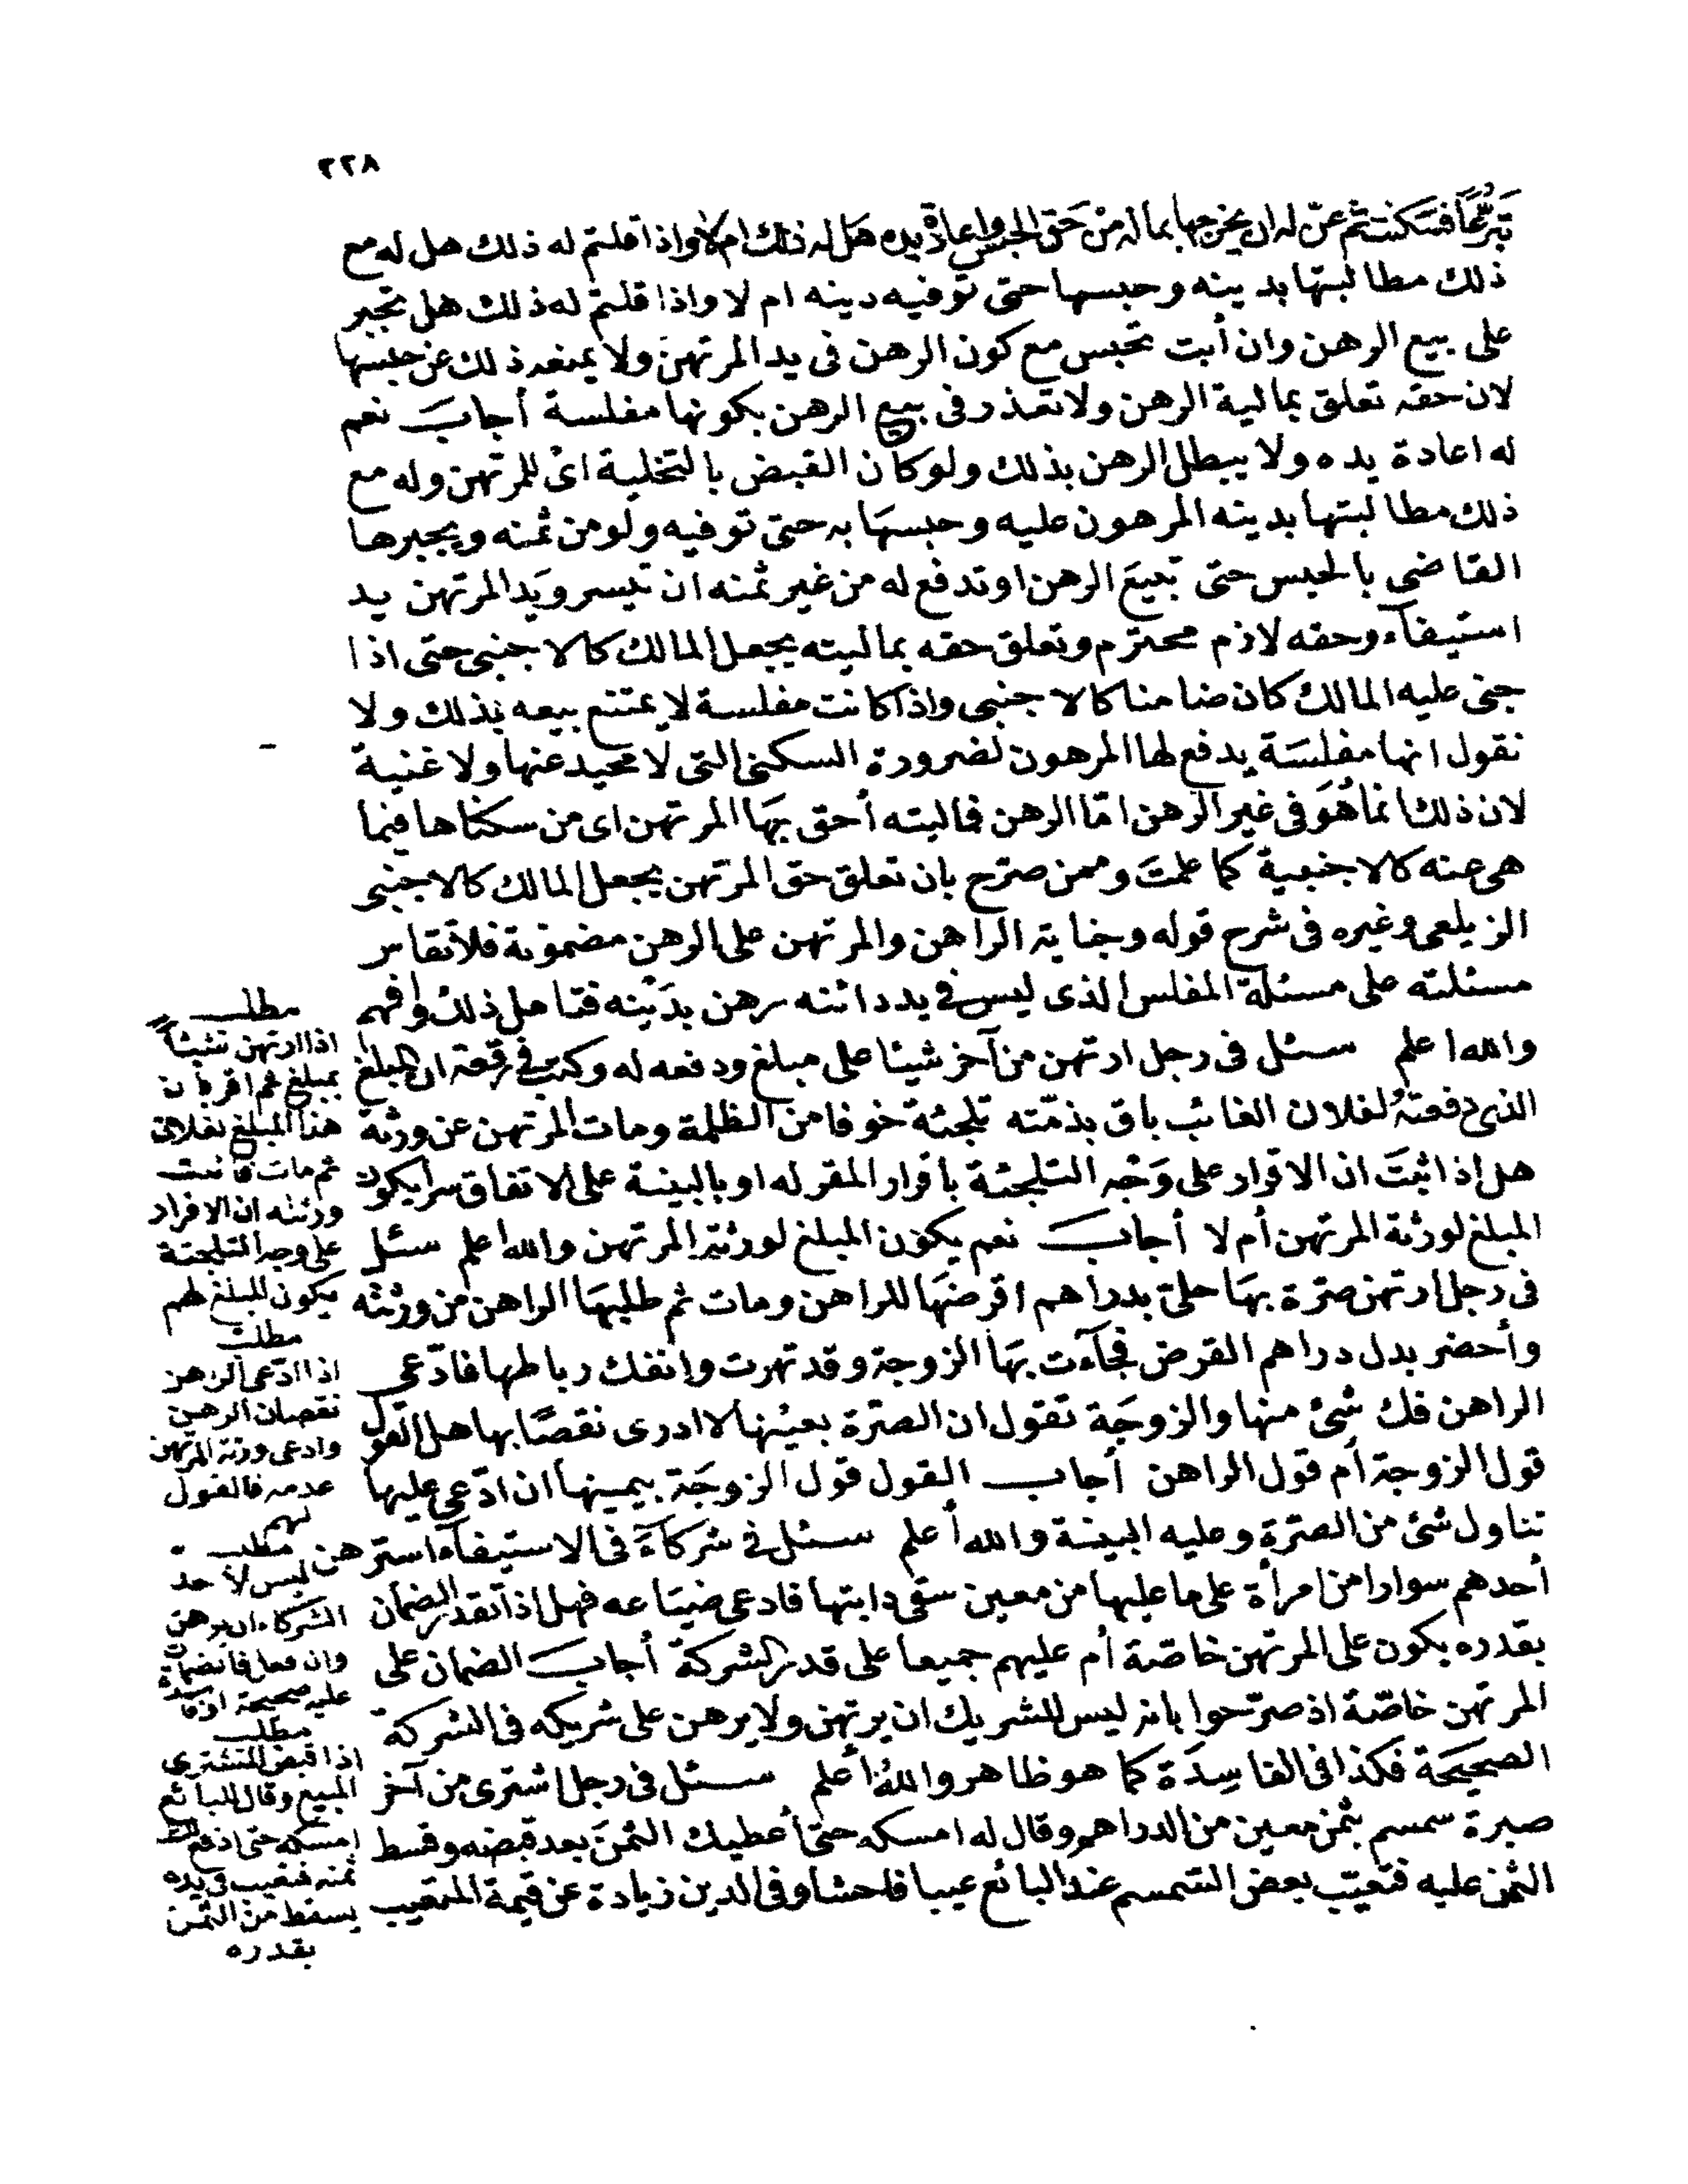 ٢٢٨
تبرعا فسكنت ثم عنّ له ان يخرجها بماله من حق الحبس واعادة يده هل له ذلك ام لا واذا قلتم له ذلك هل له مع
ذلك مطالبتها بدينه وحبسها حتى توفيه دينه ام لا واذا قلتم له ذلك هل تجبر
على بيع الرهن وان أبت تحبس مع كون الرهن فى يد المرتهن ولا يمنعه ذلك عن حبسها
لان حقه تعلق بمالية الرهن ولا تعذر فى بيع الرهن بكونها مفلسة أجاب نعم
له اعادة يده ولا يبطل الرهن بذلك ولو كان القبض بالتخلية اى للمرتهن وله مع
ذلك مطالبتها بدينه المرهون عليه وحبسها به حتى توفيه ولو من ثمنه ويجبرها
القاضى بالحبس حتى تبيع الرهن او تدفع له من غير ثمنه ان تيسر ويد المرتهن يد
استيفآء وحقه لازم محترم وتعلق حقه بماليته يجعل المالك كالاجنبى حتى اذا
جنى عليه المالك كان ضامنا كالاجنبى واذا كانت مفلسة لا يمتنع بيعه بذلك ولا
نقول انها مفلسة يدفع لها المرهون لضرورة السكنى التى لا محيد عنها ولا غنية
لان ذلك انما هو فى غير الرهن امّا الرهن فماليته أحق بها المرتهن اى من سكناها فيما
هى عنه كالاجنبية كما علمت وممن صرّح بان تعلق حق المرتهن يجعل المالك كالاجنبى
الزيلعى وغيره فى شرح قوله وجناية الراهن والمرتهن على الرهن مضمونة فلا تقاس
مسئلته على مسئلة المفلس الذى ليس فى يد دائنه رهن بدينه فتامل ذلك وافهم
والله اعلم سئل فى رجل ارتهن من آخر شيئا على مبلغ ودفعه له وكتب فى رقعة ان المبلغ
الذى دفعته لفلان الغائب باق بذمّته تلجئة خوفا من الظلمة ومات المرتهن عن ورثة
هل اذا ثبت ان الاقرار على وجه التلجئة باقرار المقر له او بالبينة على الاتفاق سرا يكون
المبلغ لورثة المرتهن أم لا أجاب نعم يكون المبلغ لورثة المرتهن والله اعلم سئل
فى رجل ارتهن صرّة بها حلىّ بدراهم اقرضها للراهن ومات ثم طلبها الراهن من ورثته
وأحضر بدل دراهم القرض فجآءت بها الزوجة وقد تهرت وانفك رباطها فادّعى
الراهن فك شئ منها والزوجة تقول ان الصرّة بعينها لا ادرى نقصًا بها هل القول
قول الزوجة أم قول الراهن أجاب القول قول الزوجة بيمينها ان ادّعى عليها
تناول شئ من الصرّة وعليه البينة والله أعلم سئل فى شركآء فى الاستيفآء استرهن
أحدهم سوارا من امرأة على ما عليها من معين سقى دابتها فادعى ضياعه فهل اذا تقدر الضمان
بقدره يكون على المرتهن خاصّة أم عليهم جميعا على قدر الشركة أجاب الضمان على
المرتهن خاصّة اذ صرّحوا بانه ليس للشريك ان يرتهن ولا يرهن على شريكه فى الشركة
الصحيحة فكذا فى الفاسدة كما هو ظاهر والله أعلم سئل فى رجل اشترى من آخر
صبرة سمسم بثمن معين من الدراهم وقال له امسكه حتى أعطيك الثمن بعد قبضه وقسط
الثمن عليه فتعيّب بعض السمسم عند البائع عيبا فاحشا وفى الدين زيادة عن قيمة المتعيب
مطلب
اذا ارتهن شيئا
بمبلغ ثم اقر بان
هذا المبلغ لفلان
ثم مات فاثبت
ورثته ان الاقرار
على وجه التلجئة
يكون المبلغ لهم
مطلب
اذا ادّعى الراهن
نقصان الرهن
وادعى ورثة المرتهن
عدمه فالقول
لهم
مطلب
ليس لاحد
الشركاء ان يرهن
وان فعل فالضمان
عليه صحيحة او فاسدة
مطلب
اذا قبض المشترى
المبيع وقال للبائع
امسكه حتى ادفع لك
ثمنه فتعيب فى يده
يسقط من الثمن
بقدره